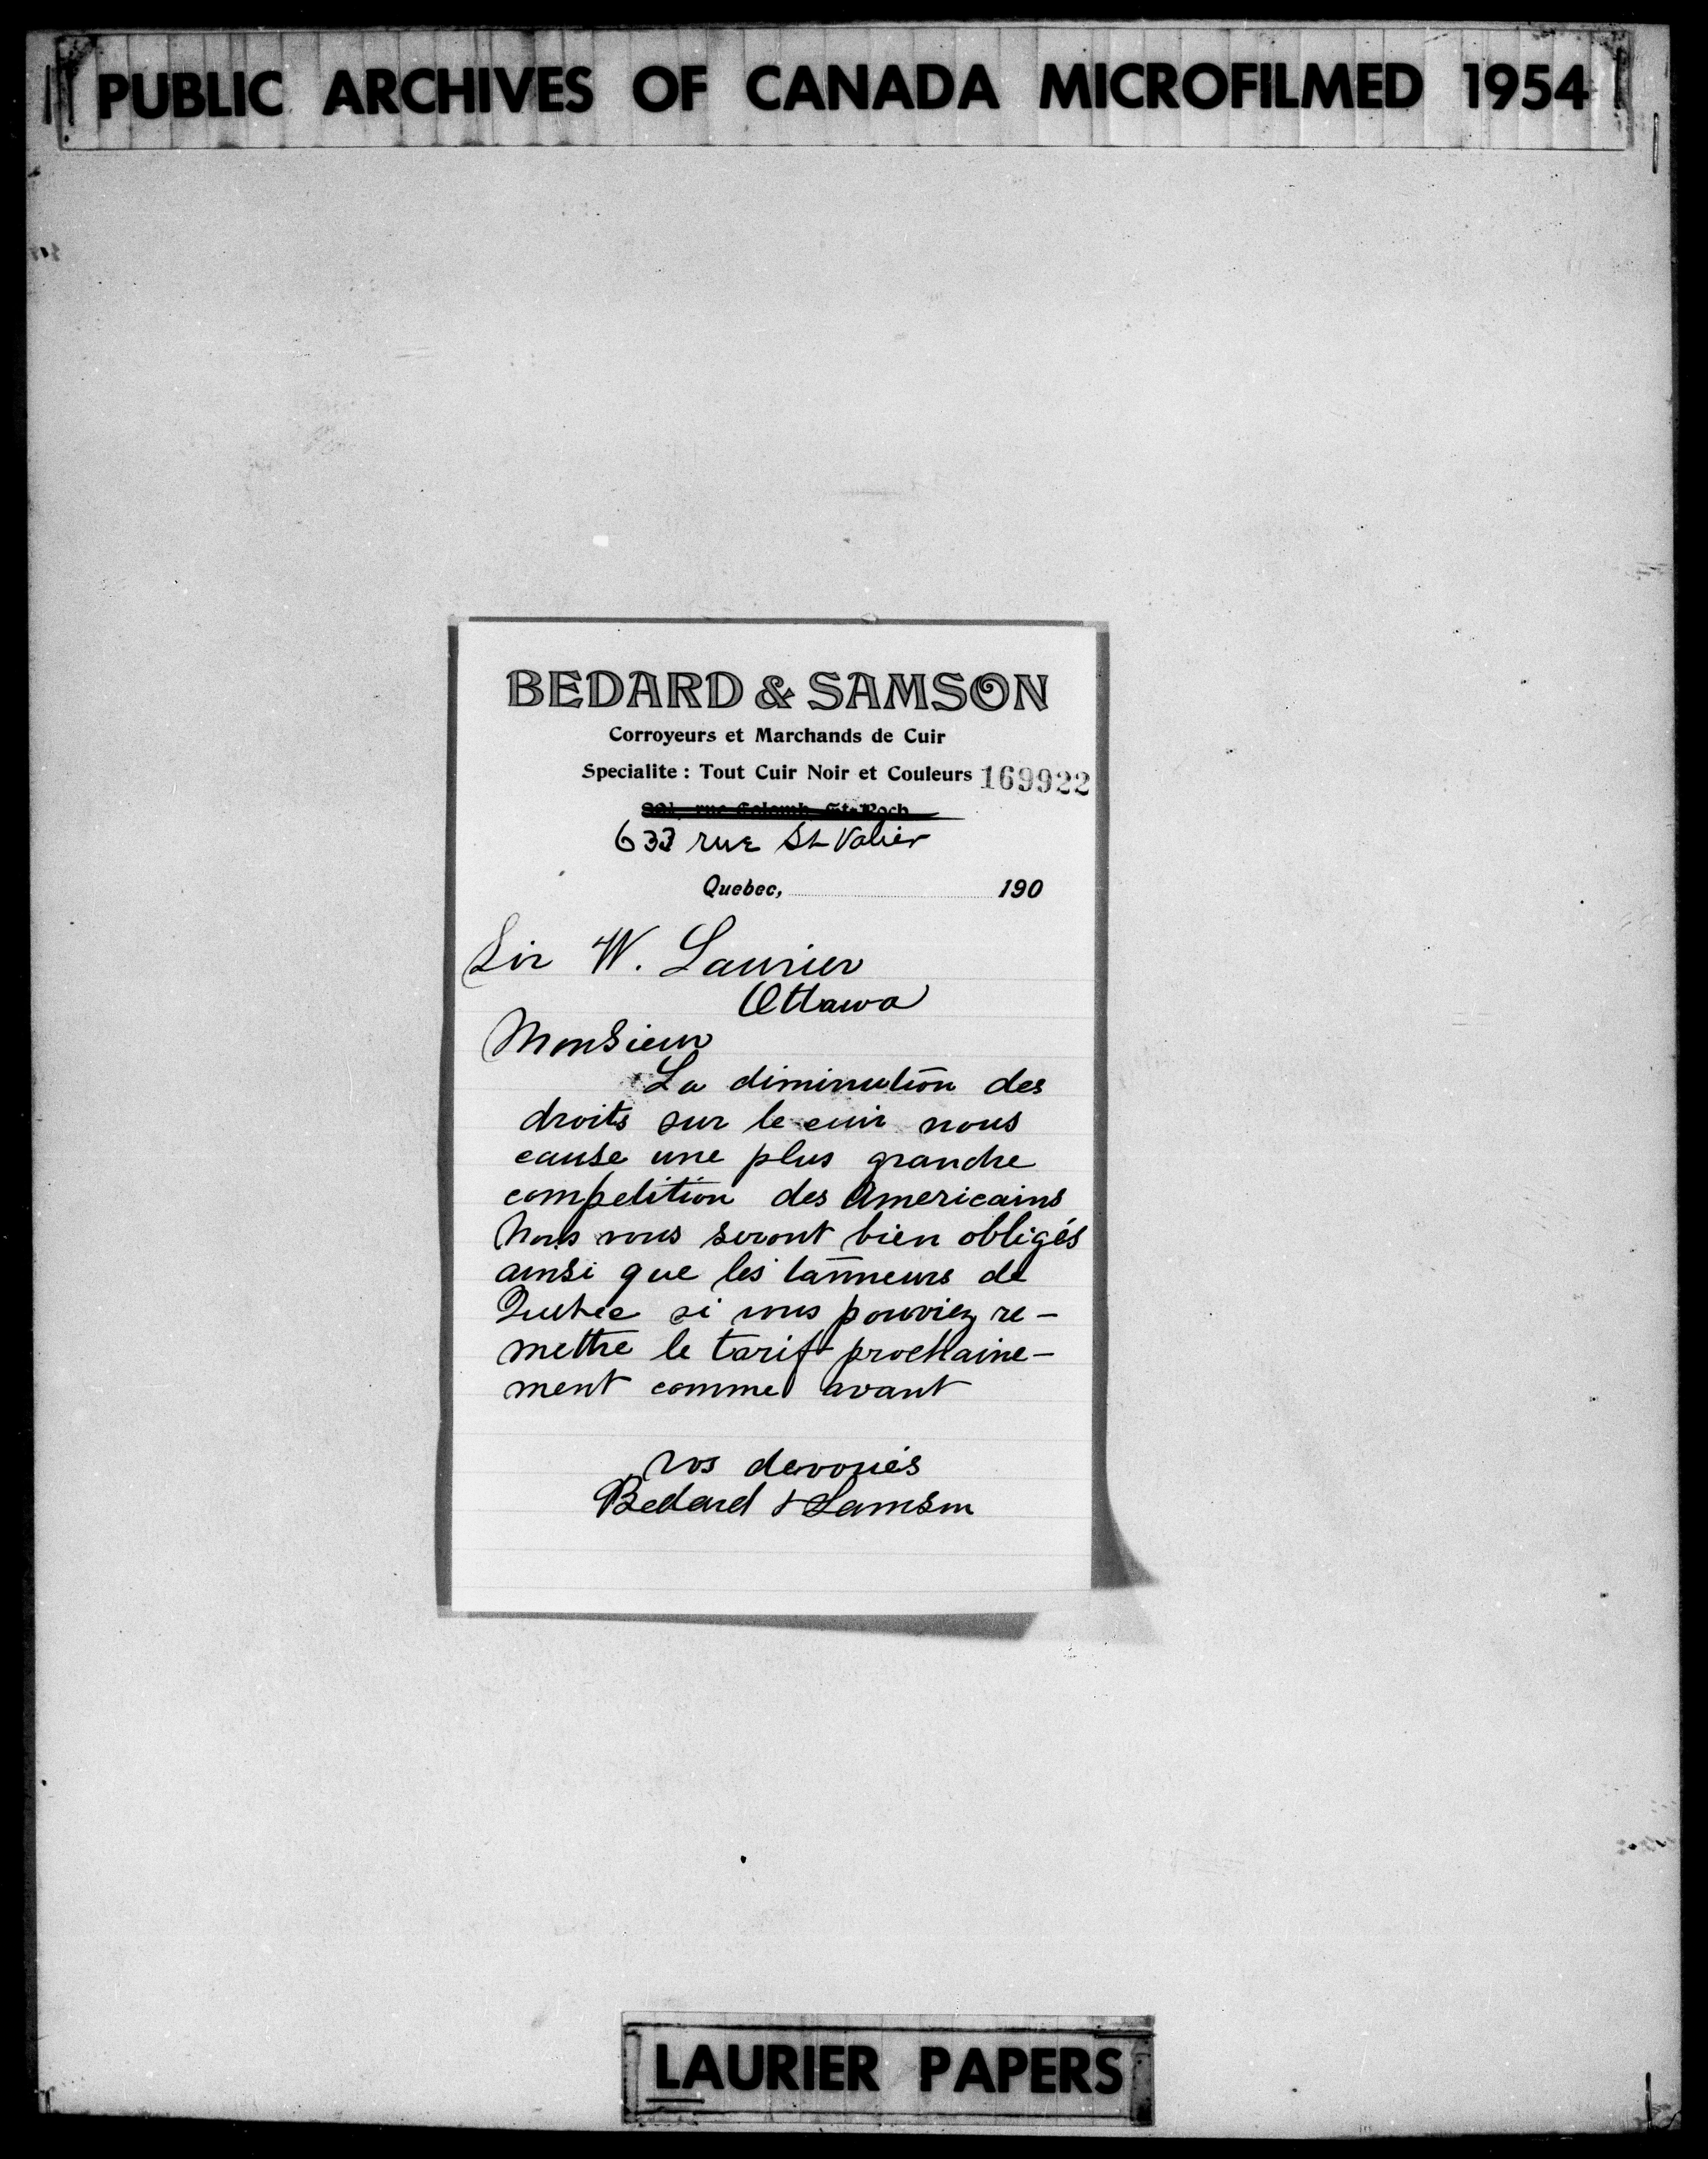 PUBLIC ARCHIVES OF CANADA MICROFILMED 1954
BEDARD & SAMSON
Corroyeurs et Marchands de Cuir
Specialite : Tout Cuir Noir et Couleurs 169922
rue Colomb, St-Roch
633 rue St Valier
Quebec, 190
Sir W. Laurier
Ottawa
Monsieur
La diminution des
droits sur le cuir nous
cause une plus grande
competition des Americains
Nous vous seront bien obligés
ainsi que les tanneurs de
Quebec si vous pouviez re-
mettre le tarif prochaine-
ment comme avant
Vos devoués
Bedard & Samson
LAURIER PAPERS